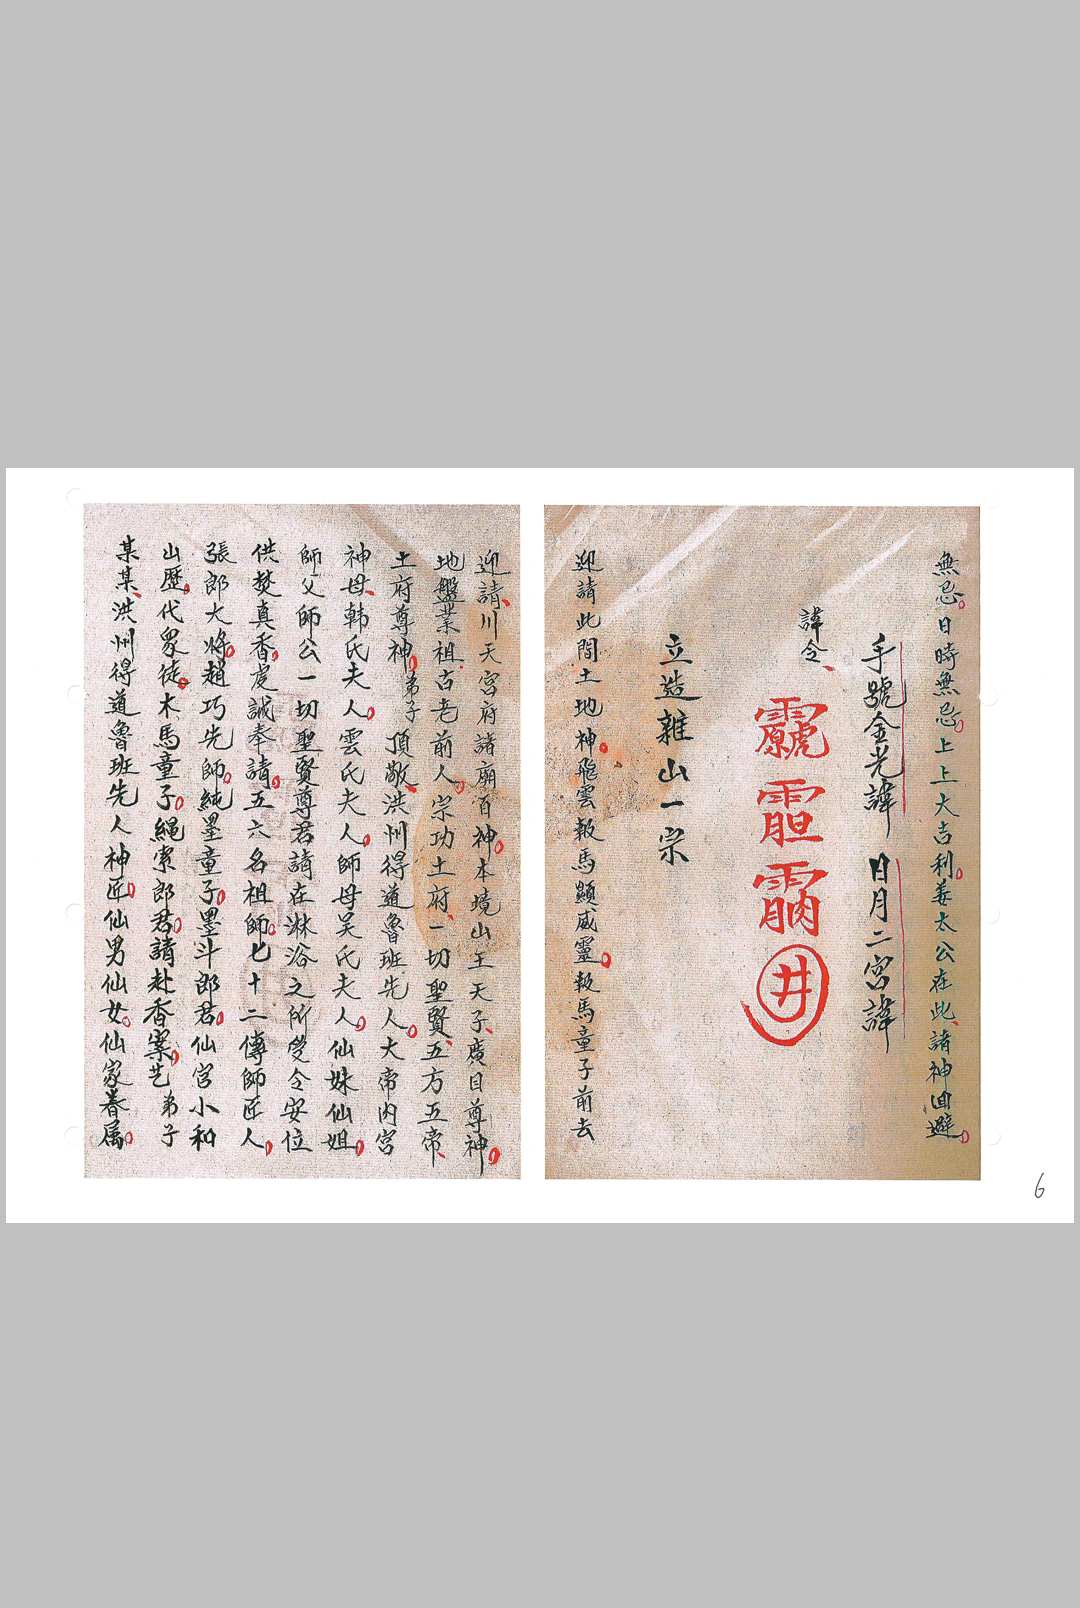 無忌日時無忌上上大吉利姜太公在此諸神迴避
手號金光諱 日月二宮諱
諱令
井
立造雜山一宗
迎請此間土地神飛雲報馬顯威靈報馬童子前去
迎請川天宮府諸廟百神本境山王天子廣目尊神
地盤業祖古老前人宗功土府一切聖賢五方五帝
土府尊神弟子頂敬洪州得道魯班先人大帝內宮
神母韩氏夫人雲氏夫人師母吴氏夫人仙妹仙姐
師父師公一切聖賢尊君請在淋浴之所受令安位
供焚真香虔誠奉請五六名祖師七十二傳師匠人
張郎大將趙巧先師純墨童子墨斗郎君仙宮小和
山歷代眾徒木馬童子繩索郎君請赴香案艺弟子
某某洪州得道魯班先人神匠仙男仙女仙家眷属
6